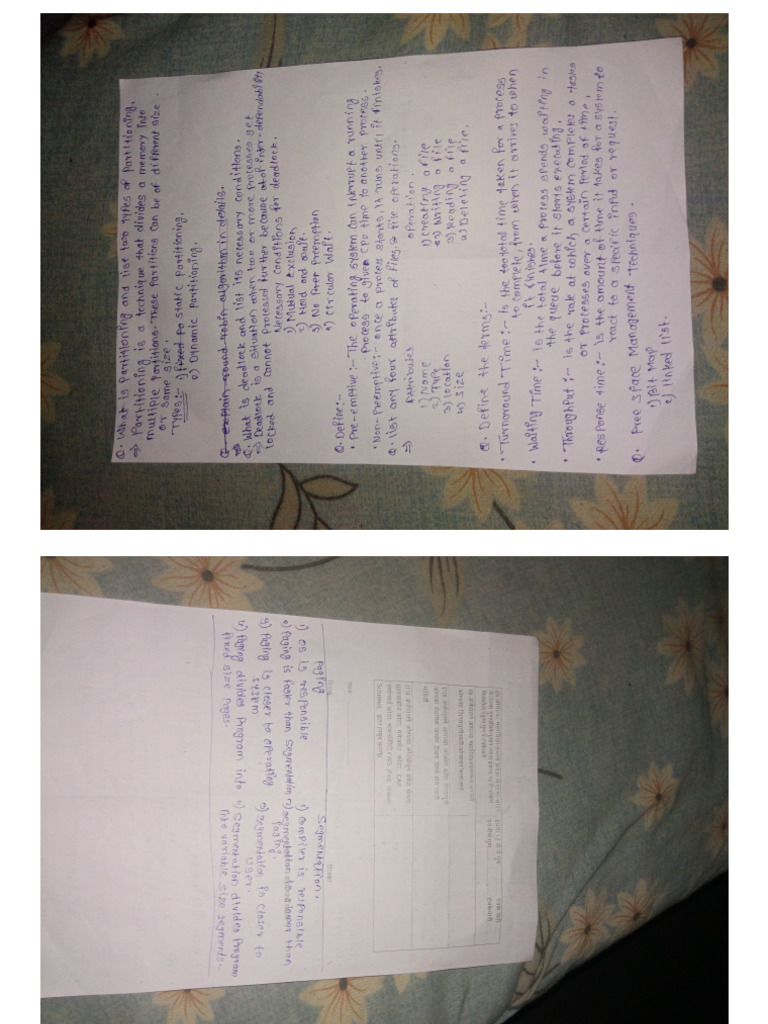 Q. What is Partitioning and list two types of Partitioning.
⇒ Partitioning is a technique that divides a memory into
multiple Partitions. These Partitions can be of different size
or same size.
Types :- 1) fixed to static partitioning.
2) Dynamic Partitioning.
Q explain round robin algorithm in details.
Q. What is deadlock and list its necessary conditions.
⇒ Deadlock is a situation when two or more processes get
locked and cannot processed further because of inter-dependability
Necessary conditions for deadlock.
1) Mutual Exclusion
2) Hold and wait.
3) No Preemption
4) Circular Wait.
Q. Define:-
• Pre-emptive :- The operating system can interrupt a running
Process to given CPU time to another process.
• Non-Preemptive :- once a process starts, it runs until it finishes.
Q. list any four attributes of files & file operations.
⇒ Attributes operation.
1) Name 1) creating a file
2) Type 2) Writing a file
3) location 3) Reading a file
4) Size 4) Deleting a file.
Q. Define the terms:-
• Turnaround Time :- is the total time taken for a process
to complete, from when it arrives to when
it finishes.
• Waiting Time :- is the total time a process spends waiting in
the queue before it starts executing.
• Throughput :- is the rate at which a system completes a tasks
or processes over a certain Period of time.
• Response time :- is the amount of time it takes for a system to
ract to a specific input or request.
Q. Free space Management Techniques.
1) Bit Map
2) linked list.
Paging Segmentation.
1) OS is responsible 1) Compiler is responsible
2) Paging is faster than Segmentation 2) Segmentation is slower than
Paging.
3) Paging is closer to operating 3) Segmentation is closer to
system User.
4) Paging divides Program into 4) Segmentation divides Program
fixed size Pages. variable size segments.